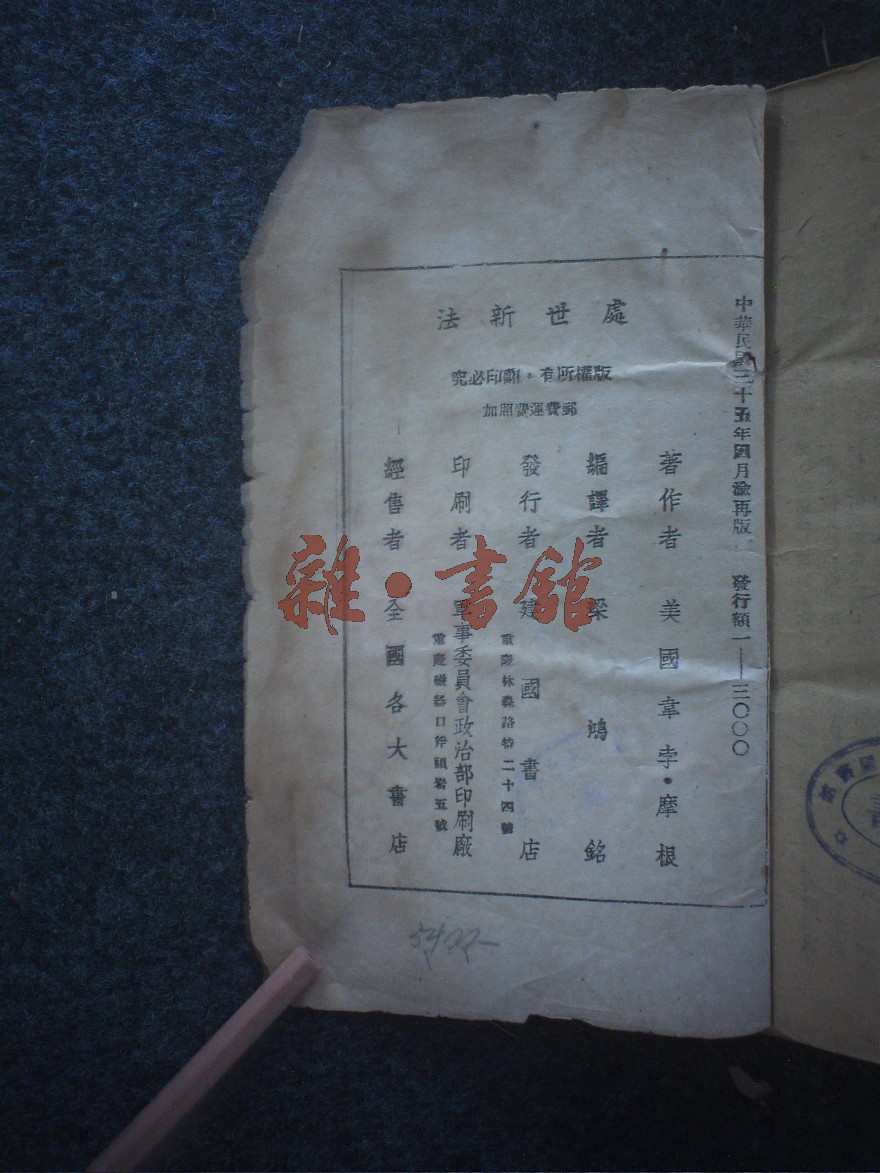 中華民國三十五年四月渝再版 發行額一——三〇〇〇
處世新法
版權所有・翻印必究
郵費運費照加
著作者 美國韋孛・摩根
編譯者 梁鴻銘
發行者 建國書店
重慶林森路特二十四號
印刷者 軍事委員會政治部印刷廠
重慶磁器口斧頭岩五號
經售者 全國各大書店
雜・書館